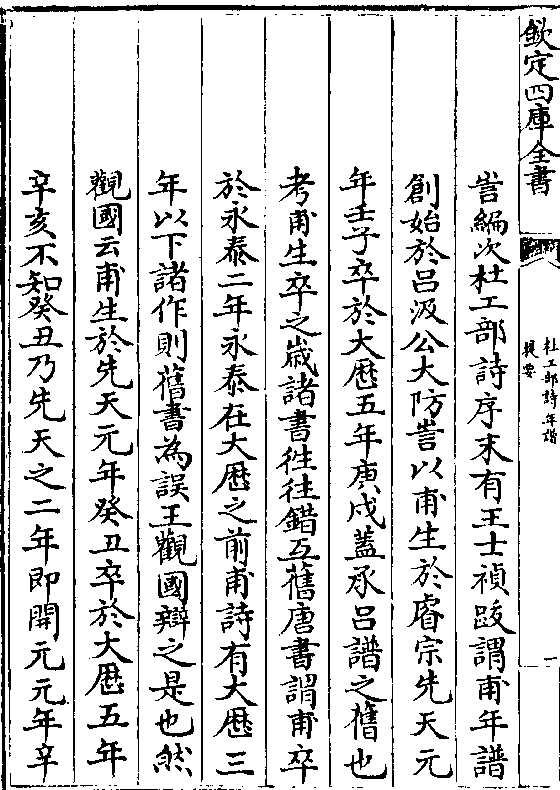 欽定四庫全書
杜工部詩年譜
提要
一
訔編次杜工部詩序末有王士禎跋謂甫年譜
創始於呂汲公大防訔以甫生於睿宗先天元
年壬子卒於大厯五年庚戌蓋承呂譜之舊也
考甫生卒之歳諸書徃徃錯互舊唐書謂甫卒
於永泰二年永泰在大厯之前甫詩有大厯三
年以下諸作則舊書為誤王觀國辯之是也然
觀國云甫生於先天元年癸丑卒於大厯五年
辛亥不知癸丑乃先天之二年即開元元年辛